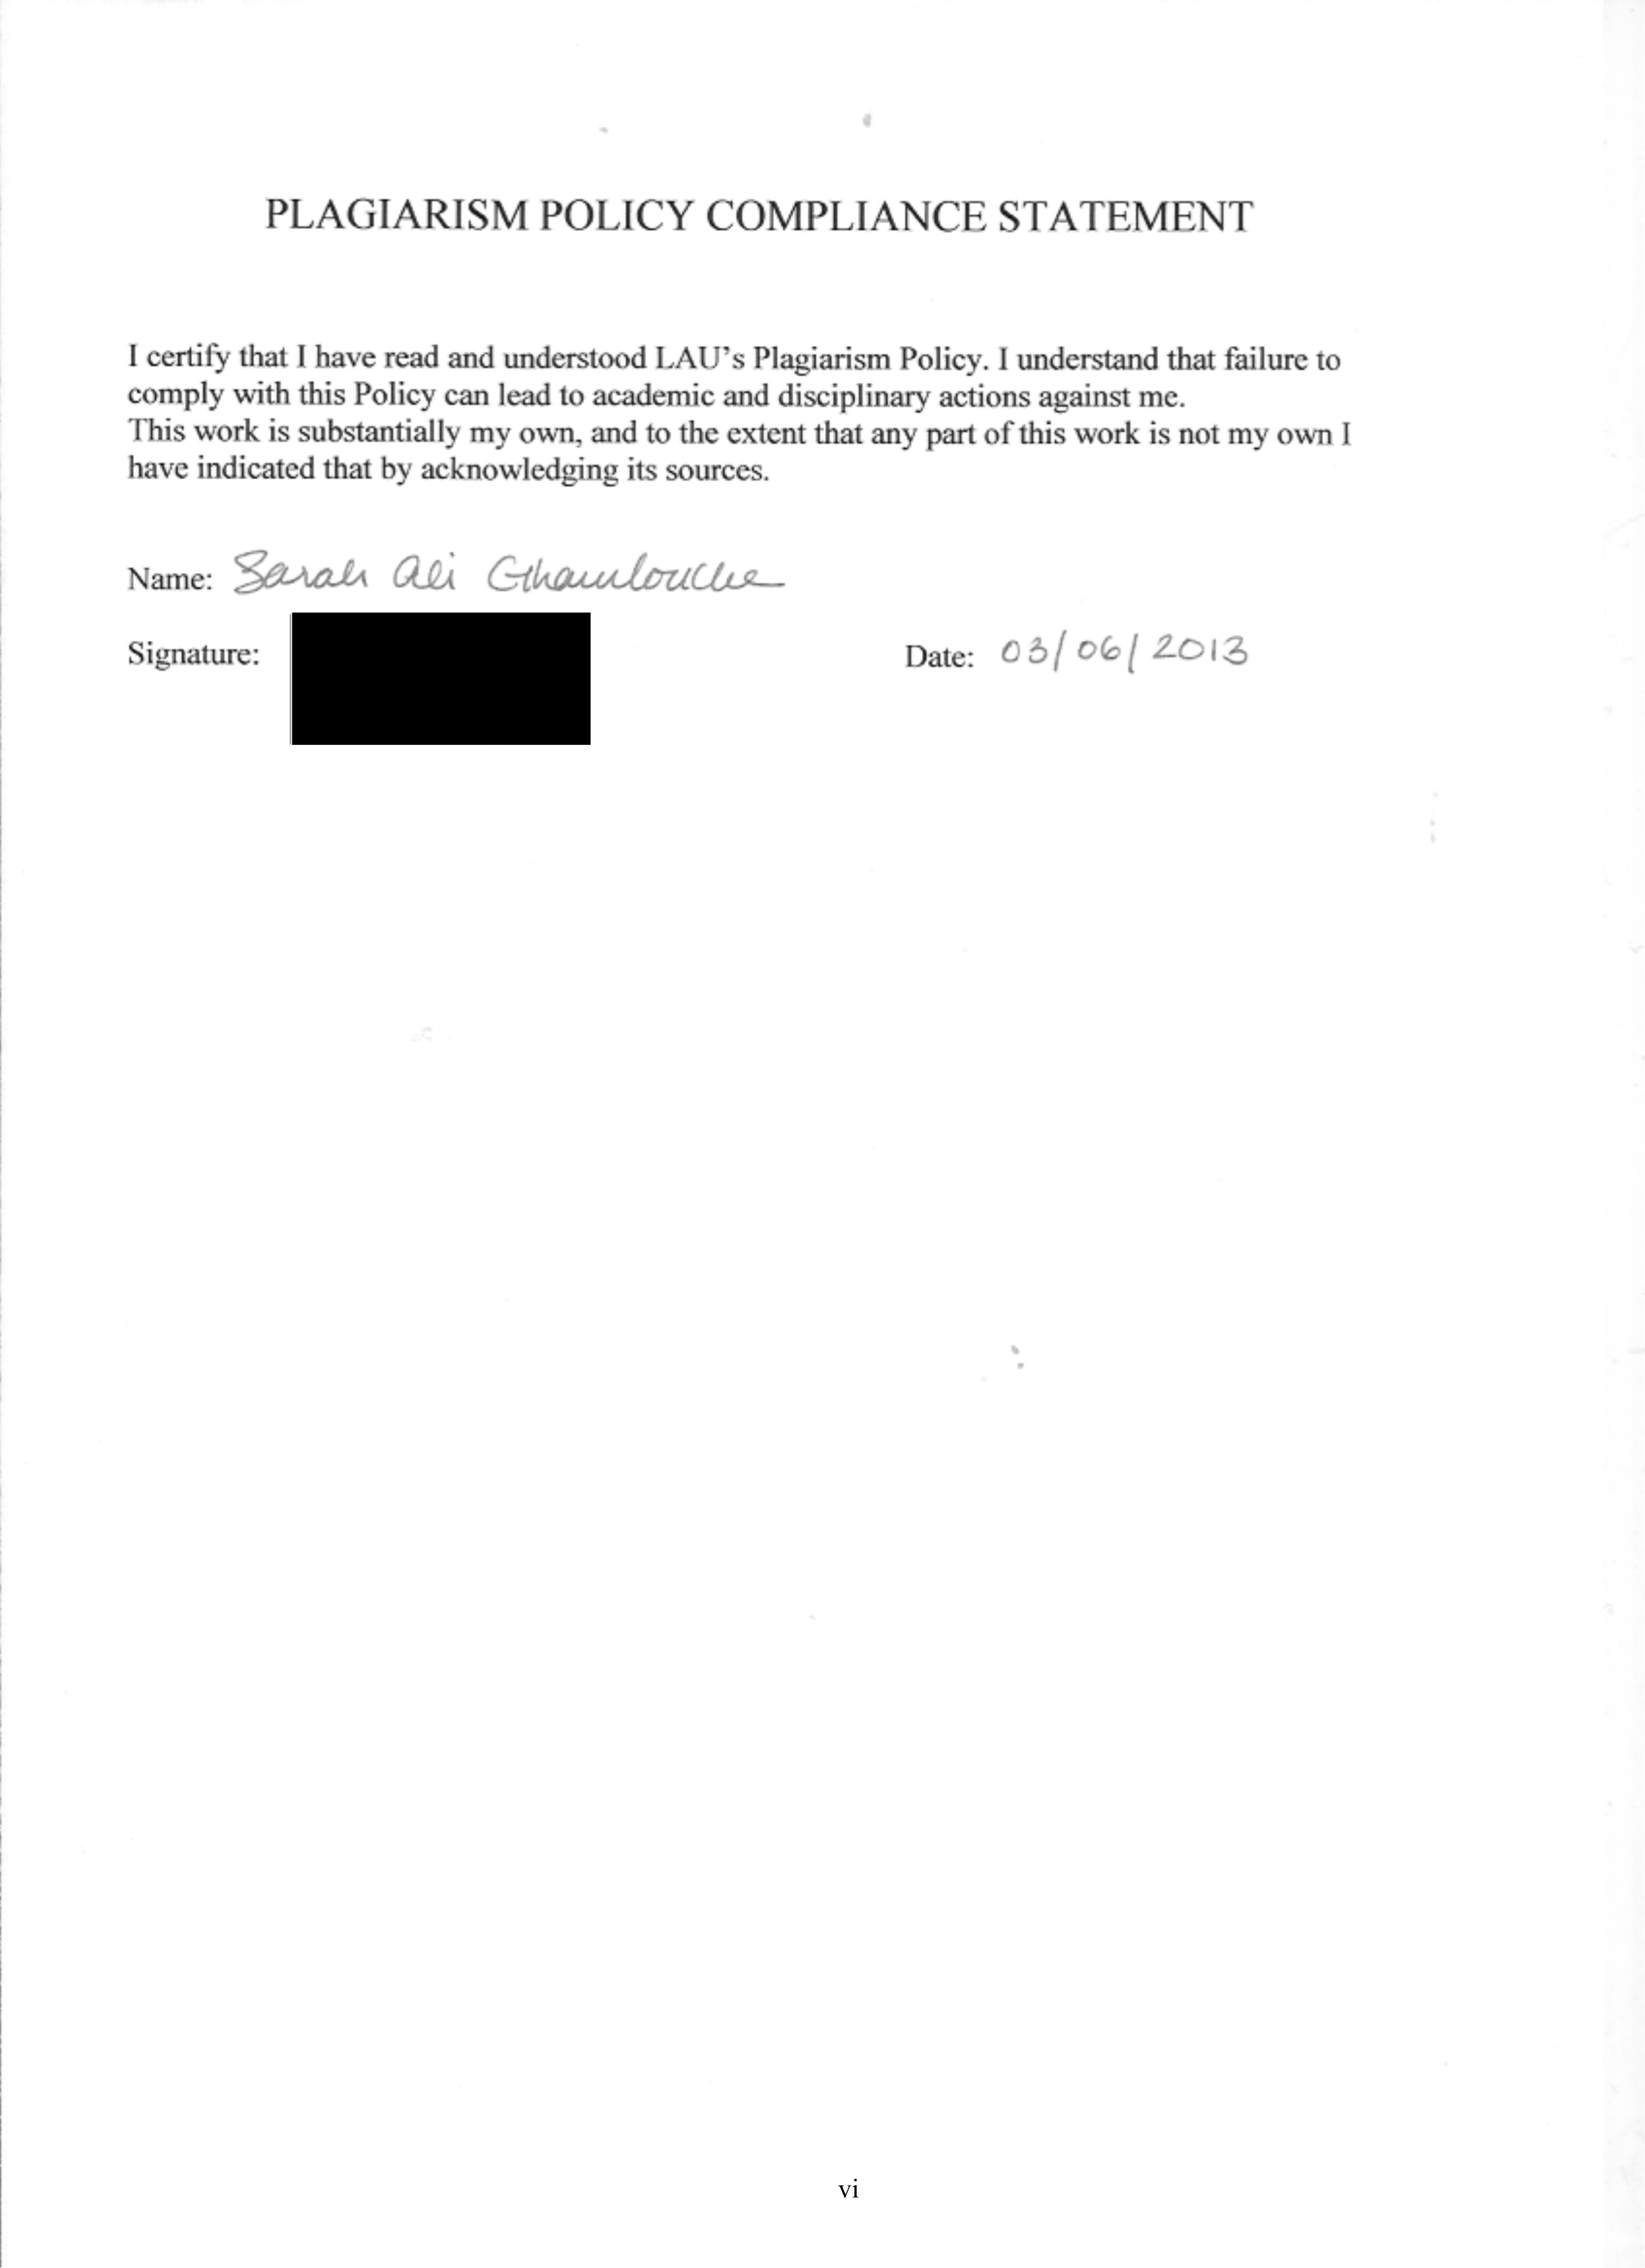 PLAGIARISM POLICY COMPLIANCE STATEMENT
I certify that I have read and understood LAU's Plagiarism Policy. I understand that failure to
comply with this Policy can lead to academic and disciplinary actions against me.
This work is substantially my own, and to the extent that any part of this work is not my own I
have indicated that by acknowledging its sources.
Name: Sarah Ali Ghamlouche
Signature:
Date: 03/06/2013
vi